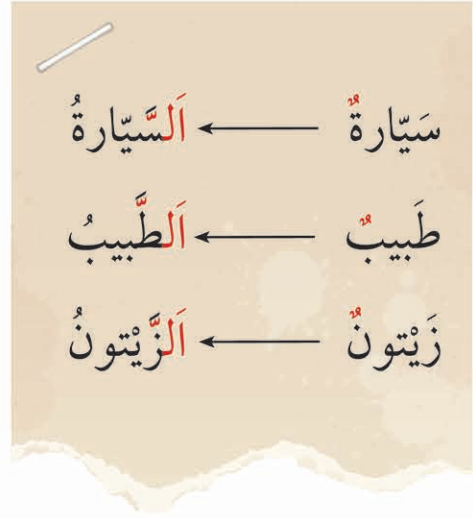 سَيّارةٌ ← اَلسَّيّارةُ
طَبيبٌ ← اَلطَّبيبُ
زَيْتونٌ ← اَلزَّيْتونُ